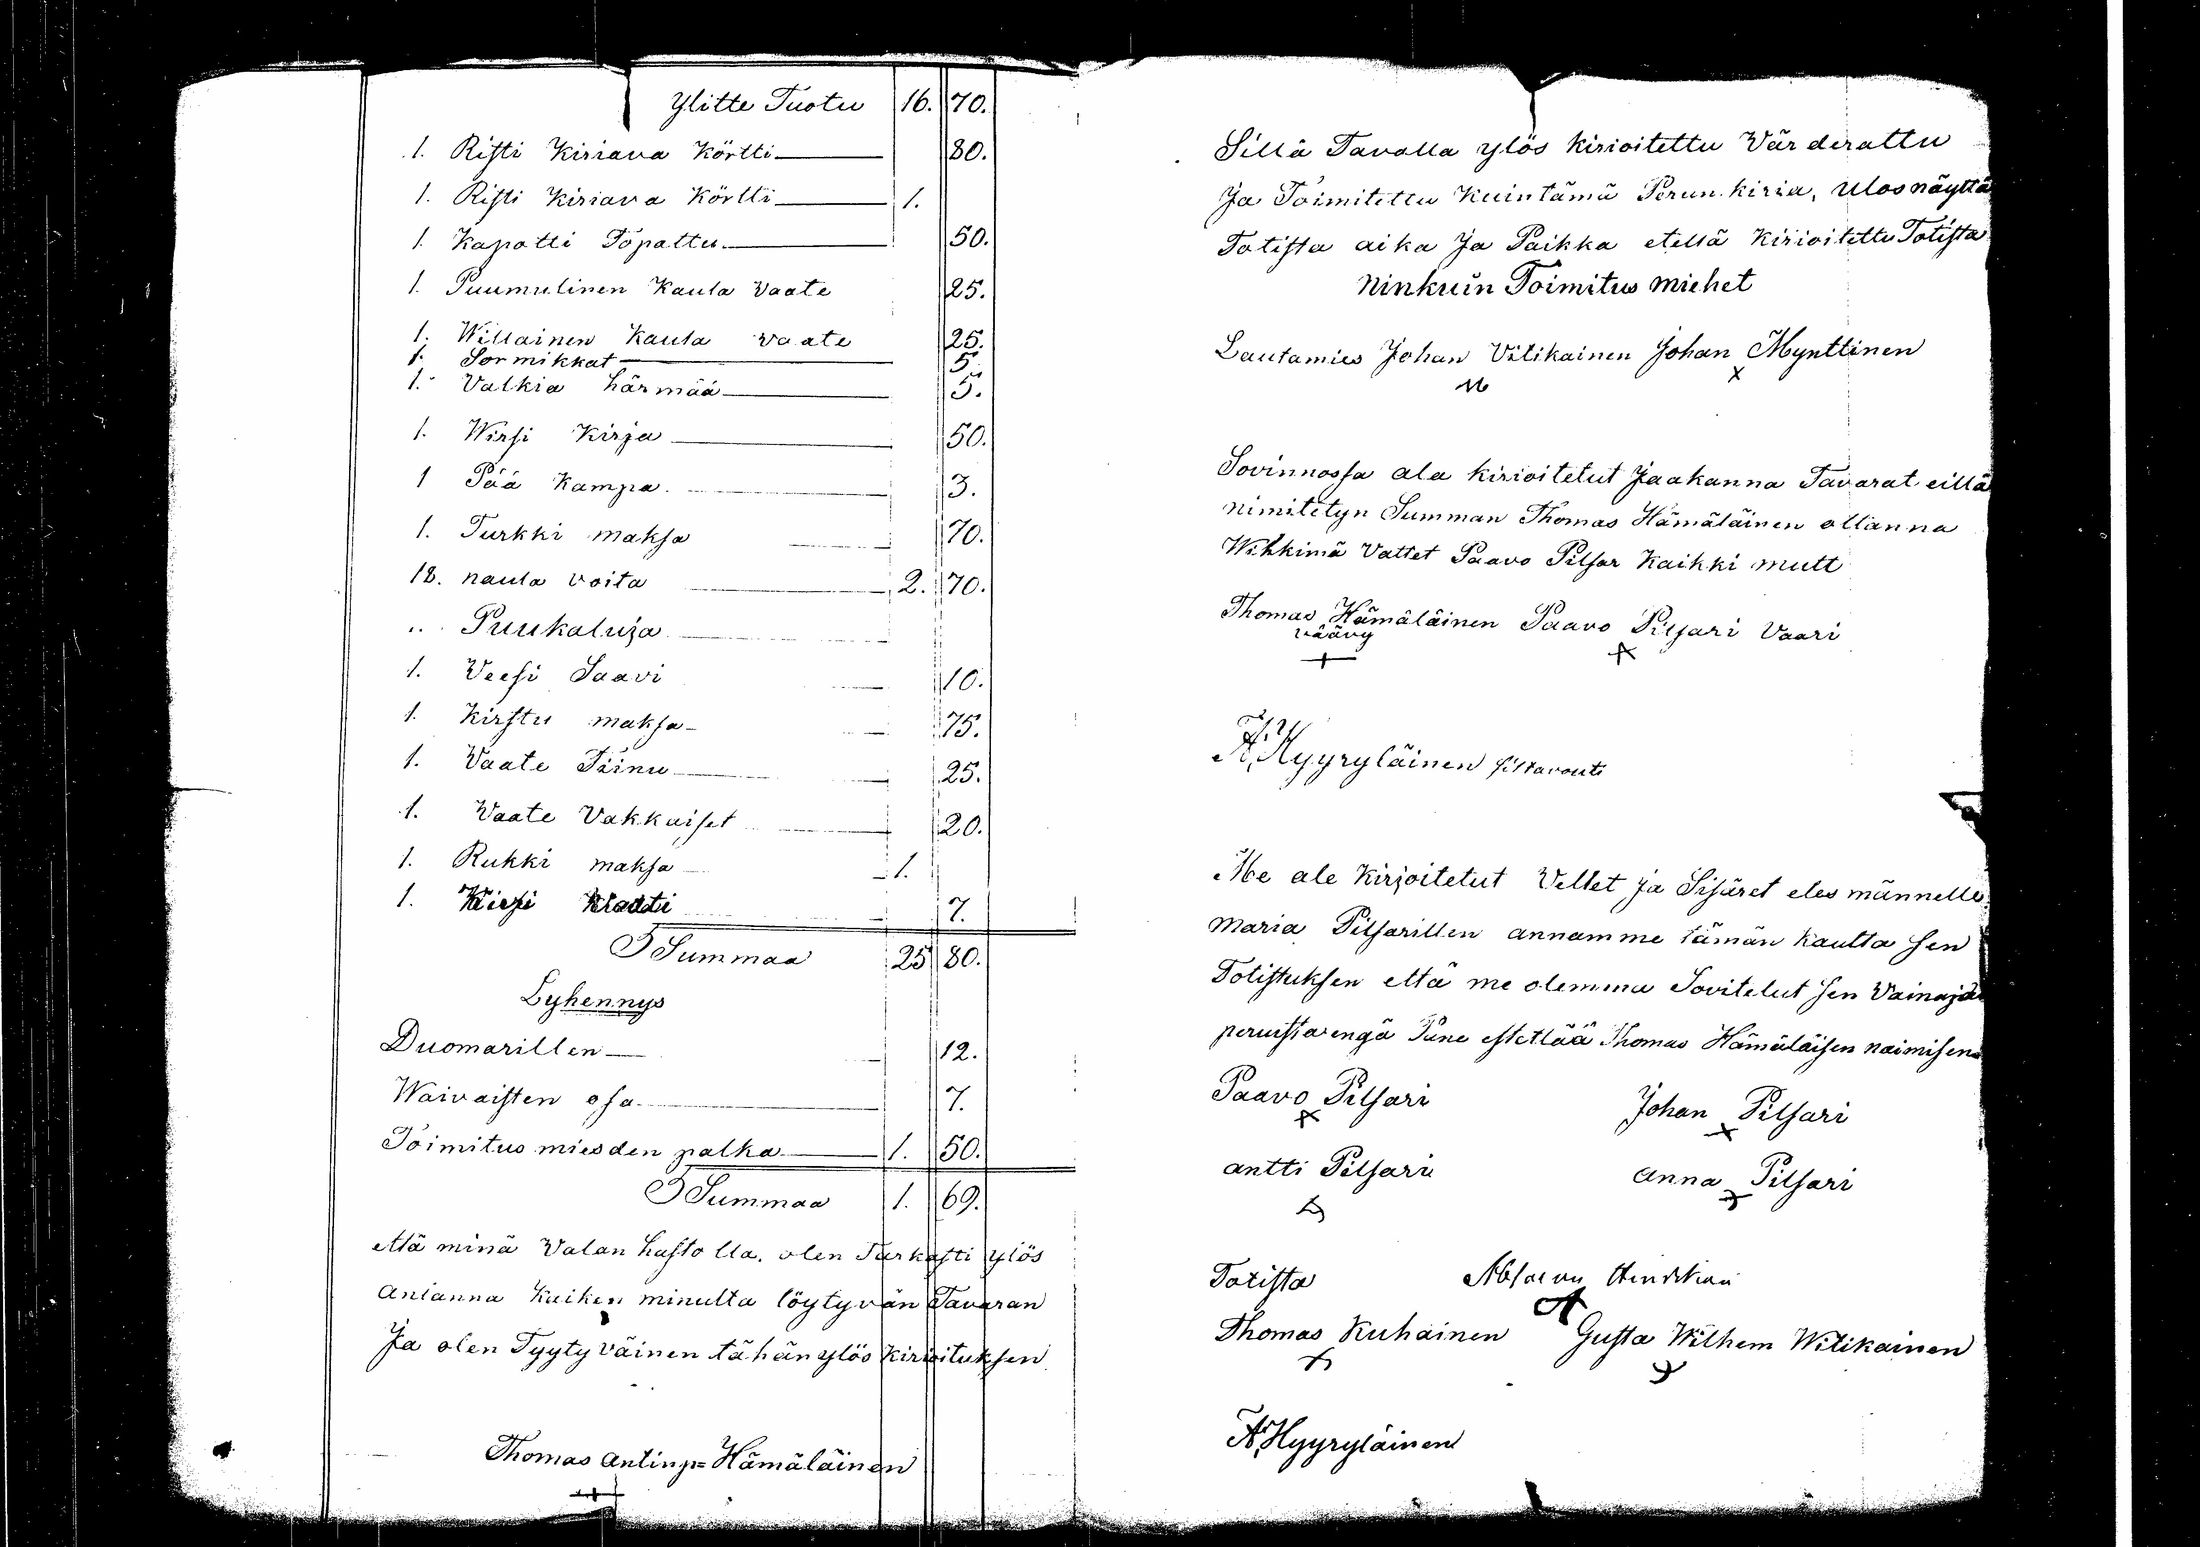 Ylitte Tuotu 16. 70.
1. Risti Kiriava Körtti 80.
1. Risti Kiriava Körtti 1.
1. Kapotti Töpattu 50.
1. Puumulinen Kaula Vaate 25.
1. Willainen Kaula Vaate 25.
1. Sormikkat 5.
1. Valkia härmää 5.
1. Wirsi Kirja 50.
1 Pää Kampa 3.
1. Turkki maksa 70.
18. naula voita 2. 70.
" Puukaluja
1. Veesi Saavi 10.
1. Kirstu maksa 75.
1. Vaate Tiinu 25.
1. Vaate Vakkaiset 20.
1. Rukki maksa 1.
1. 7.
Summaa 25 80.
Lyhennys
Duomarillen 12.
Waivaisten osa 7.
Toimitus miesden palka 1. 50.
Summaa 1. 69.
että minä Valan hustolla. olen Tarkasti ylös
anianna Kaiken minulta löytyvän Tavaran
Ja olen Tyytyväinen tähän ylös Kirioituksen
Thomas Antinp= Hämäläinen
Sillä Tavalla ylös Kirioitettu Värderattu
Ja Toimitettu Kuin tämä Perun kiria, Ulos näyttä
Totista aika Ja Paikka etellä Kirioitettu Totista
Ninkuin Toimitus miehet
Lautamies Johan Vitikainen Johan Mynttinen
x
Sovinnossa ala kirioitetut Jaakanna Tavarat eillä
nimitetyn Summan Thomas Hämäläinen ottanna
Wihkimä Vattet Paavo Pilsar Kaikki mutt
Thomas Hämäläinen Paavo Pilsari Vaari
väävy
A, Hyyryläinen
Me ale Kirjoitetut Vellet Ja Sisäret eles männelle
Maria Pilsarillen annamme tämän Kautta sen
Totistuksen että me olemma Sovitelut sen Vainajan
peruista engä Tüne estettää Thomas Hämäläisen naimisen
Paavo Pilsari Johan Pilsari
antti Pilsari Anna Pilsari
Totista
Thomas Kuhainen Gusta Wilhem Witikainen
A, Hyyryläinen